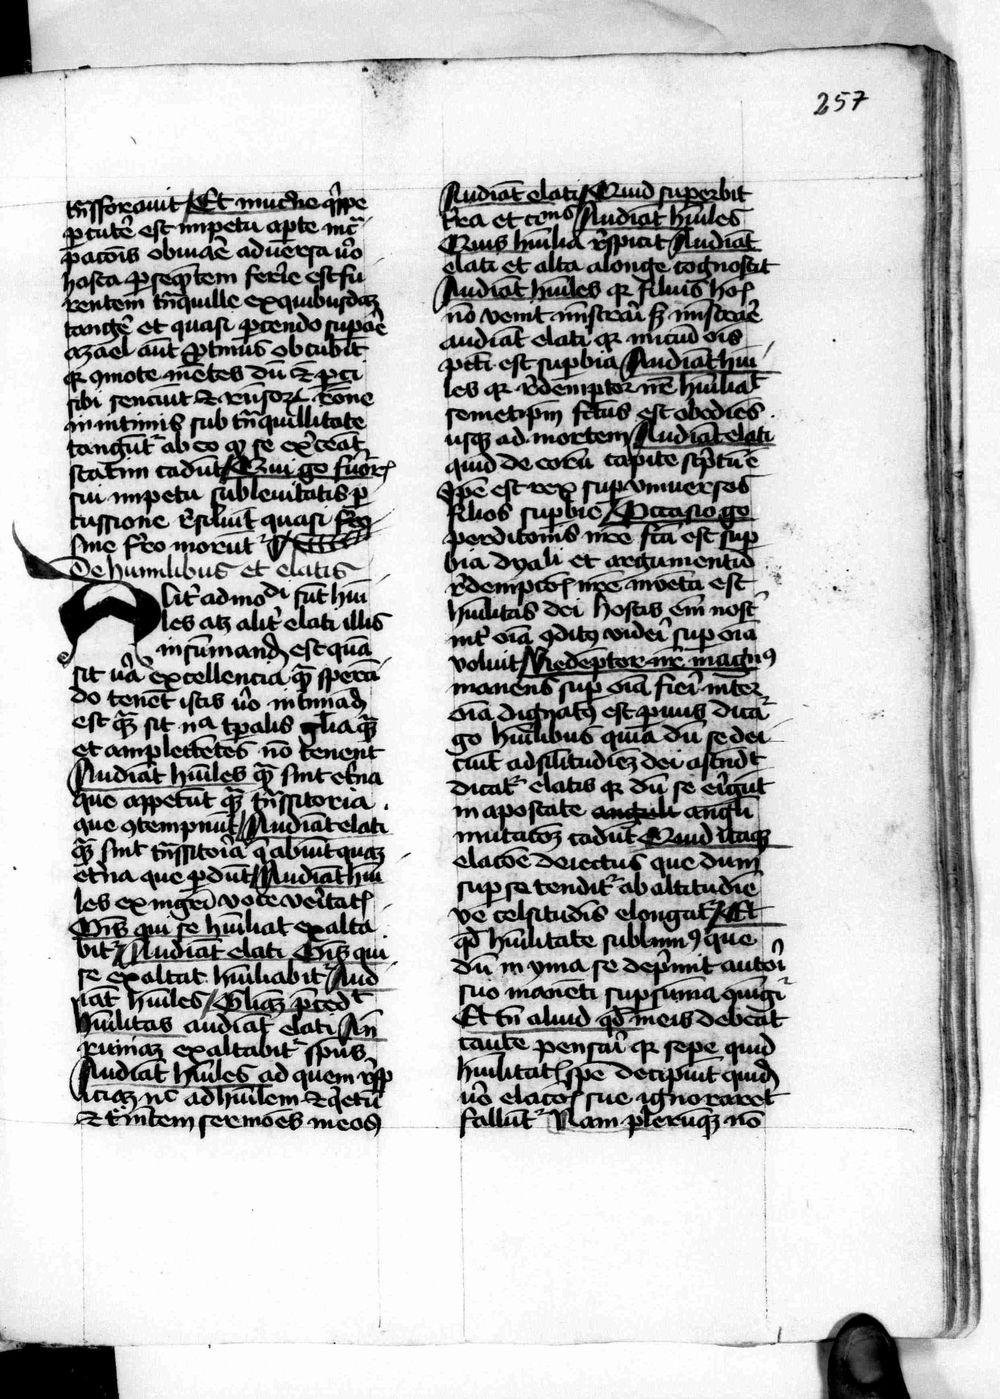 257
tn̄sforauit Et mucrōe q̄ppe
ꝑcutē est impetu aꝑte īcͣ
pacōis obuiaē aduersa ūo
hasta ꝑ seq̄ntem ferire est fu
rentem tn̄quille ex quibusdaꝫ
tangē et quasi ꝑcendo supaē
aȝael aūt ꝓtinus occubūt
qꝛ ꝯmote mētes dū ⁊ ꝑci
sibi senciūt ⁊ rōne
in intimis sub tn̄quillitate
tangūtʳ ab eo qꝫ se exꝰceāt
statim cadūt Qui gͦ fuorꝭ
sui impetu sub lenitatis ꝑ
cussione rͤsoluūt quasi fͤro
sine fͤro moriūtʳ
De humilibus et elatis
Alitʳ admodi sūt hūi
les atꝫ alitʳ elati illis
insumand est quā
sit uͤa excellencia qͣm sperā
do tenēt istis ūo intimād
est qͣm sit na tꝑalis glia qͣm
et amplectētes nō tenent
Audiāt hūiles qͣm sint etͤna
que appetūt qͣm tn̄ssitoria
que ꝯtempnūt Audiāt elati
qͣm sint tn̄ssitoria q̄ abiūt quaꝫ
etͤna que ꝑdūt Audiāt hūi
les ex mgrī voce veritatꝭ
Oīs qui se hūiliat exalta
bitʳ Audiāt elati Oīs qui
se exaltat hūiliabitʳ Aud
iāt hūiles Gliaꝫ p̄cedt
hūilitas audiāt elati An̄
ruinaꝫ exaltabitʳ spūs
Audiāt hūiles ad quem rͤsp
iciaꝫ nͥ ad hūilem ⁊ qetū
⁊ tͤmētem sermōes meos
Audiāt elati Quid superbit
tͤra et cinis Audiāt hūiles
Deus hūilia rͤspicit Audiāt
elati et alta alonge cognoscit
Audiāt hūiles qꝛ filius hoīs
nō venit mīstrari sꝫ mīstraē
audiāt elati qꝛ iniciū oīs
pcti est supbia Audiāt hūi
les qꝛ rͤdemptor nr̄ hūiliat
semetipm̄ factus est obediēs
usqꝫ ad mortem Audiāt elati
quid de eorū capite sc̄ptū ē
Ipē est rex sup vniuersos
filios supbie Occasio gͦ
perditōnis nr̄e fc̄a est sup
bia dyali et argumentū
rͤdempcōis nr̄e īuēta est
hūilitas dei hostis em̄ nostʳ
intʳ oīa ꝯditꝰ videri sup oīa
voluit Redēptor nr̄ magnꝰ
manens sup oīa fieri inter
oīa dignatꝰ est puus dicat
gͦ hūilibus quia dū se dei
ciūt ad silitudiez dei ascendt
dicatʳ elatis qꝛ dū se erigūt
in apostate angeli angli
imitacōꝫ cadūt Quid itaqꝫ
elacōe deiectius que dum
sup se tenditʳ ab altitudīe
ve celsitudīs elongatʳ Et
qd hūilitate sublimiꝰ que
dū in yma se dep̄mit autori
suo manēti sup sūma iungi
Et tn̄ aliud qd in eis debeat
caute pensari qꝛ sepe quid
hūilitatꝭ spē decipiūt quid
ūo elacōis sue ignorancͥ
fallūtʳ Nam plerūqꝫ nō